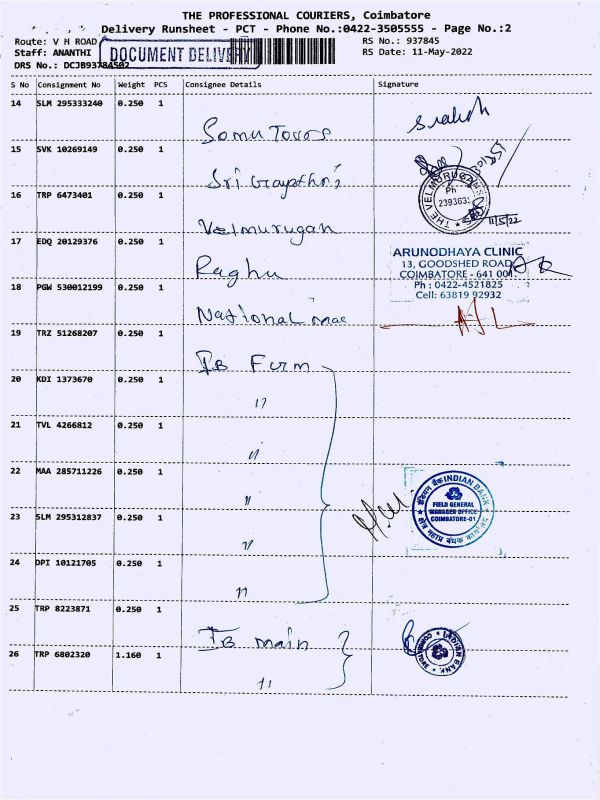 THE PROFESSIONAL COURIERS, Coimbatore
Delivery Runsheet - PCT - Phone No.:0422-3505555 - Page No.:2
Route: V H ROAD
RS No.: 937845
Staff: ANANTHI
DOCUMENT DELIVERY
RS Date: 11-May-2022
DRS No.: DCJB93784502
S No Consignment No Weight PCS Consignee Details Signature
14 SLM 295333240 0.250 1
Somu Toors
15 SVK 10269149 0.250 1
Sri Gayathri's
16 TRP 6473401 0.250 1
THE VELMURUGAN
Ph
11/5/22
Velmurugan
17 EDQ 20129376 0.250 1
Raghu
ARUNODHAYA CLINIC
13, GOODSHED ROAD
COIMBATORE - 641 001.
Ph : 0422-4521825
Cell: 63819 92932
18 PGW 530012199 0.250 1
National mac
19 TRZ 51268207 0.250 1
IB Fgm
20 KDI 1373670 0.250 1
"
21 TVL 4266812 0.250 1
"
22 MAA 285711226 0.250 1
"
INDIAN BANK
FIELD GENERAL
MANAGER OFFICE
COIMBATORE-01
23 SLM 295312837 0.250 1
"
24 DPI 10121705 0.250 1
"
25 TRP 8223871 0.250 1
IB main
INDIAN BANK
COIMBATORE
26 TRP 6802320 1.160 1
"